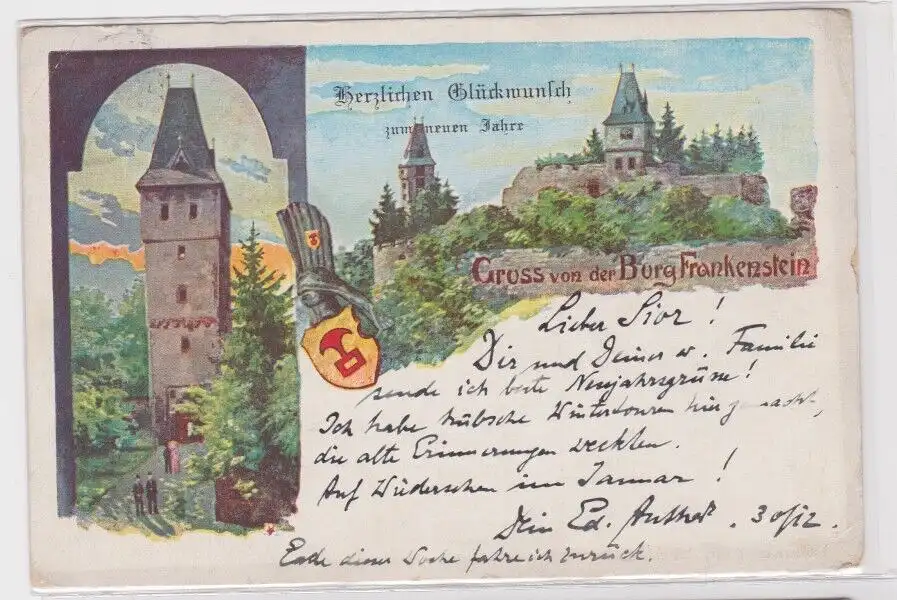 Herzlichen Glückwunsch
zum neuen Jahre
Gruss von der Burg Frankenstein
Lieber !
Dir und Deiner w. Familie
sende ich beste Neujahrsgrüsse!
Ich habe hübsche Wintertouren hier gemacht,
die alte Erinnerungen weckten.
Auf Wiedersehen im Januar!
Dein Ed. . 30/12.
Ende dieser Woche fahre ich zurück.